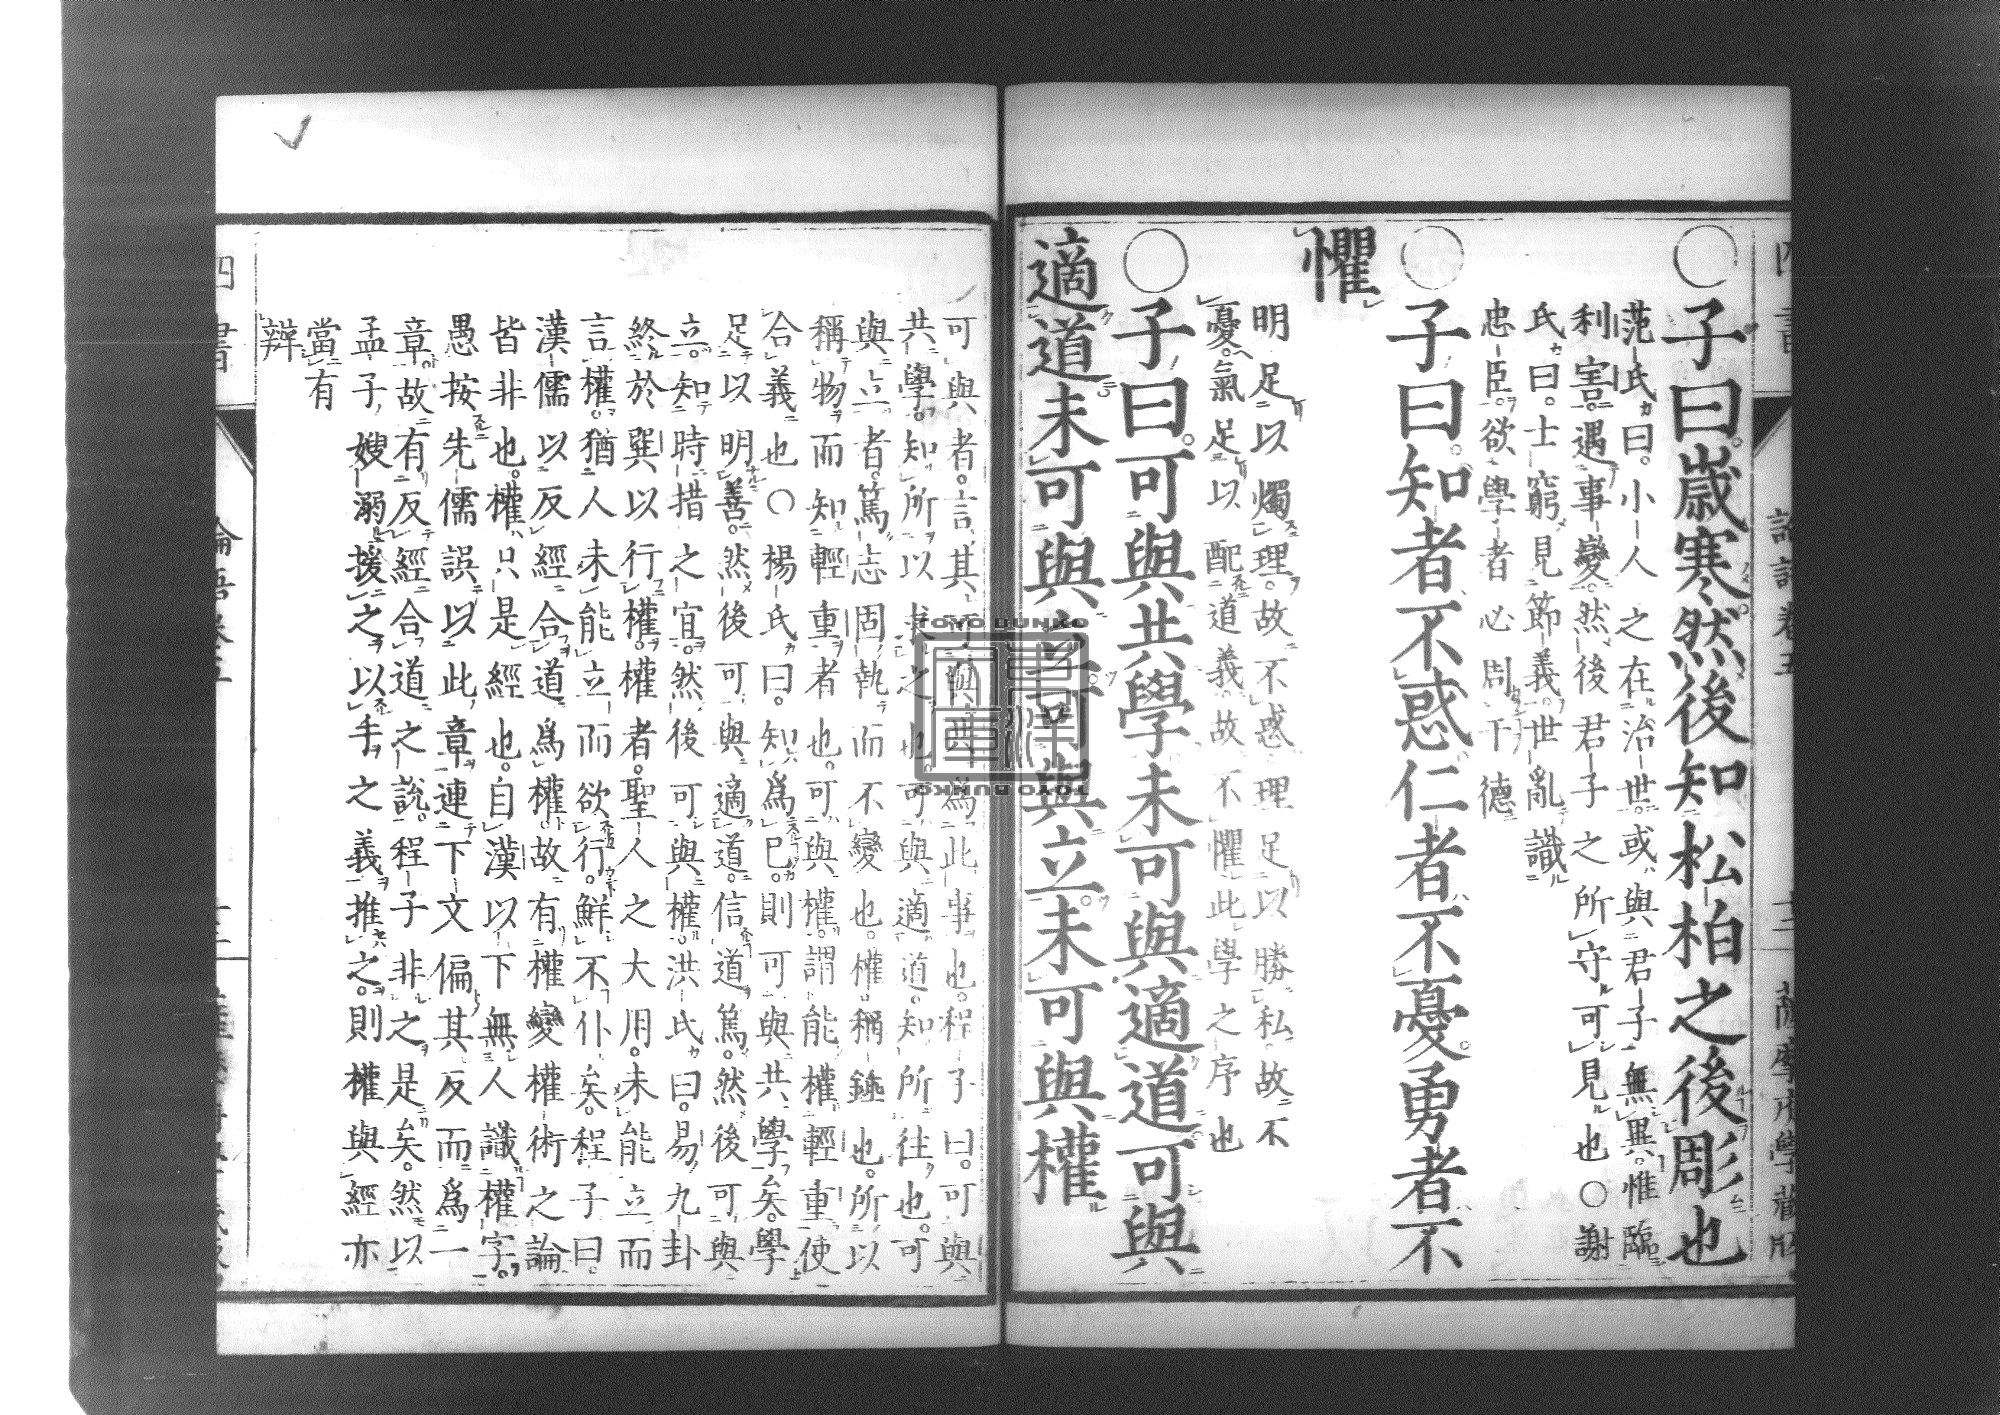 ○子曰歲寒然後知松柏之後彫也
范氏曰小人之在治世或與君子無異惟臨
利害遇事變然後君子之所守可見也○謝
氏曰士窮見節義世亂識
忠臣欲學者必周于德
○子曰知者不惑仁者不憂勇者不
懼
明足以燭理故不惑理足以勝私故不
憂氣足以配道義故不懼此學之序也
○子曰可與共學未可與適道可與
適道未可與立可與立未可與權
可與者言其可與共為此事也程子曰可與
共學知所以求之也可與適道知所往也可
與立者篤志固執而不變也權稱錘也所以
稱物而知輕重者也可與權謂能權輕重使
合義也○楊氏曰知為已則可與共學矣學
足以明善然後可與適道信道篤然後可與
立知時措之宜然後可與權洪氏曰易九卦
終於巽以行權權者聖人之大用未能立而
言權猶人未能立而欲行鮮不仆矣程子曰
漢儒以反經合道為權故有權變權術之論
皆非也權只是經也自漢以下無人識權字
愚按先儒誤以此章連下文偏其反而為一
章故有反經合道之說程子非之是矣然以
孟子嫂溺援之以手之義推之則權與經亦
當有
辯
四書
論語卷五
TOYO BUNKO